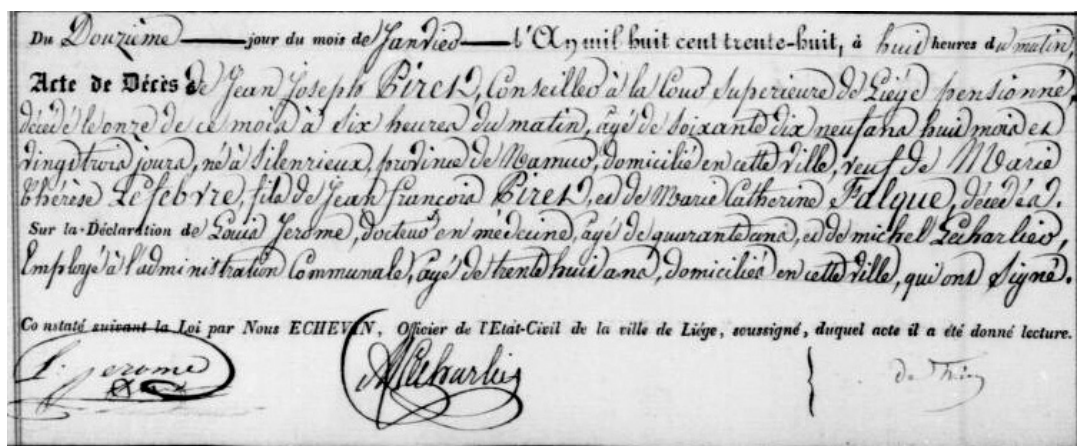 Du Douzième jour du mois de Janvier l'An mil huit cent trente-huit, à huit heures du matin,
Acte de Décès de Jean Joseph Piret, Conseiller à la Cour Superieure de Liége pensionné,
décédé le onze de ce mois à six heures du matin, agé de soixante dix neuf ans huit mois et
vingt trois jours, né à Silenrieux, province de Namur, domicilié en cette ville, veuf de Marie
Thérèse Lefebvre, fils de Jean françois Piret, et de Marie Catherine Falque, décédés.
Sur la Déclaration de Louis Jerome, docteur en médecine, agé de quarante ans, et de michel Lecharlier,
Employé à l'administration Communale, agé de trente huit ans, domiciliés en cette Ville, qui ont Signé.
Constaté suivant la Loi par Nous ECHEVIN, Officier de l'Etat-Civil de la ville de Liége, soussigné, duquel acte il a été donné lecture.
L. Jerome
Lecharlier